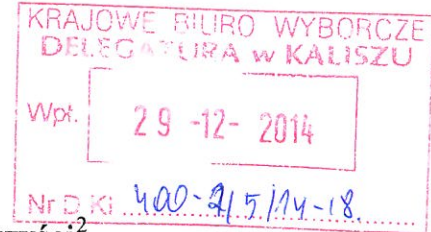 KRAJOWE BIURO WYBORCZE
DELEGATURA w KALISZU
Wpł. 29 -12- 2014
Nr DKl 400-2/5/14-18.
2